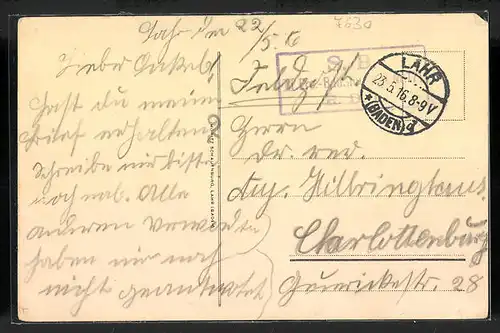 7630
Lahr den 22/5.16
Lieber Onkel!
Hast du meine
Brief erhalten
Schreibe mir bitte
noch mal. Alle
anderen Verwandte
haben mir noch
nicht geantwortet
S. B.
Feldp.
LAHR
23.5.16.8-9V
*(BADEN)d
Herrn
Dr. med.
Aug. Hilbringhaus
Charlottenburg
Guerickestr. 28